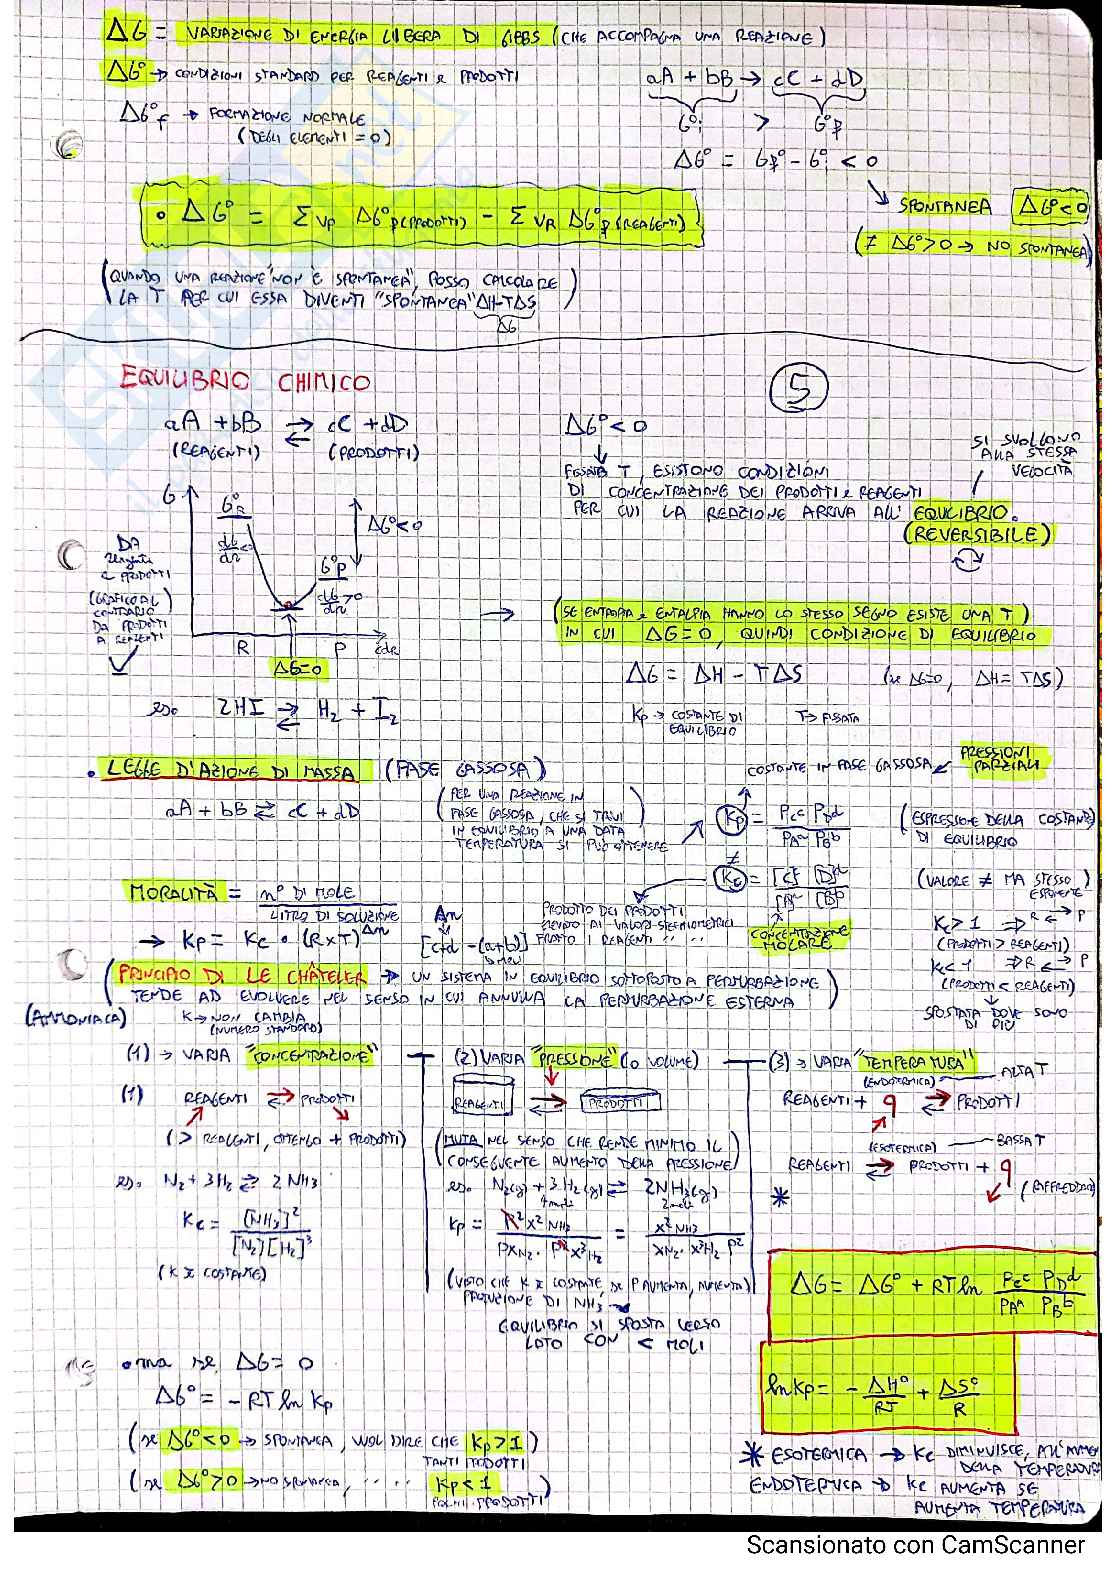 ΔG = VARIAZIONE DI ENERGIA LIBERA DI GIBBS (CHE ACCOMPAGNA UNA REAZIONE)
ΔG° → CONDIZIONI STANDARD PER REAGENTI e PRODOTTI
aA + bB → cC + dD
ΔG°f → FORMAZIONE NORMALE
(DEGLI ELEMENTI = 0)
G°i > G°f
ΔG° = Gf° - G°i < 0
• ΔG° = Σ νP ΔG°f (PRODOTTI) - Σ νR ΔG°f (REAGENTI)
SPONTANEA ΔG° < 0
(≠ ΔG° > 0 → NO SPONTANEA)
(QUANDO UNA REAZIONE "NON È SPONTANEA", POSSO CALCOLARE
LA T PER CUI ESSA DIVENTI "SPONTANEA" ΔH-TΔS)
ΔG
EQUILIBRIO CHIMICO
5
aA + bB ⇄ cC + dD
(REAGENTI) (PRODOTTI)
ΔG° < 0
FISSATA T, ESISTONO CONDIZIONI
DI CONCENTRAZIONE DEI PRODOTTI e REAGENTI
PER CUI LA REAZIONE ARRIVA ALL'EQUILIBRIO.
(REVERSIBILE)
SI SVOLGONO
ALLA STESSA
VELOCITÀ
G
G°R
ΔG° < 0
G°P
dG/dr > 0
R P
ΔG=0
DA
reagenti
a PRODOTTI
(GRAFICO AL
CONTRARIO
DA PRODOTTI
A REAGENTI)
(SE ENTROPIA e ENTALPIA HANNO LO STESSO SEGNO ESISTE UNA T)
IN CUI ΔG=0, QUINDI CONDIZIONE DI EQUILIBRIO
ΔG = ΔH - TΔS (se ΔG=0, ΔH = TΔS)
es. 2HI ⇄ H2 + I2
Kp → COSTANTE DI
EQUILIBRIO
T → FISSATA
• LEGGE D'AZIONE DI MASSA (FASE GASSOSA)
COSTANTE IN FASE GASSOSA ← PRESSIONI
PARZIALI
aA + bB ⇄ cC + dD
(PER UNA REAZIONE IN
FASE GASSOSA, CHE SI TROVI
IN EQUILIBRIO A UNA DATA
TEMPERATURA SI PUÒ OTTENERE
Kp = PCc PDd / PAa PBb
(ESPRESSIONE DELLA COSTANTE
DI EQUILIBRIO
≠
Kc = [C]c [D]d / [A]a [B]b
(VALORE ≠ MA STESSO)
ESPONENTE
MORALITÀ = n° DI MOLE / LITRO DI SOLUZIONE
PRODOTTO DEI PRODOTTI
ELEVATO AI VALORI STECHIOMETRICI
FRATTO I REAGENTI " "
CONCENTRAZIONE
MOLARE
→ Kp = Kc • (R×T)Δn
Δn
[c+d - (a+b)]
Kc > 1 ⇒ R ⇄ P
(PRODOTTI > REAGENTI)
Kc < 1 ⇒ R ⇄ P
(PRODOTTI < REAGENTI)
SPOSTATA DOVE SONO
DI PIÙ
(PRINCIPIO DI LE CHÂTELIER → UN SISTEMA IN EQUILIBRIO SOTTOPOSTO A PERTURBAZIONE
TENDE AD EVOLVERE NEL SENSO IN CUI ANNULLA LA PERTURBAZIONE ESTERNA)
(AMMONIACA)
K → NON CAMBIA
(NUMERO STANDARD)
(1) → VARIA "CONCENTRAZIONE"
(2) VARIA "PRESSIONE" (o VOLUME)
(3) → VARIA "TEMPERATURA"
(1) REAGENTI ⇄ PRODOTTI
(> REAGENTI, OTTENGO + PRODOTTI)
es. N2 + 3H2 ⇄ 2NH3
Kc = [NH3]2 / [N2][H2]3
(K è COSTANTE)
REAGENTI PRODOTTI
(MUTA NEL SENSO CHE RENDE MINIMO IL
CONSEGUENTE AUMENTO DELLA PRESSIONE)
es. N2(g) + 3H2(g) ⇄ 2NH3(g)
4 moli 2 moli
Kp = P2 x2 NH3 / P xN2 · P3 x3H2 = x2 NH3 / xN2 · x3H2 P2
(VISTO CHE K è COSTANTE, se P AUMENTA, AUMENTA)
PRODUZIONE DI NH3 →
EQUILIBRIO SI SPOSTA VERSO
LATO CON < MOLI
(ENDOTERMICA) ALTA T
REAGENTI + q ⇄ PRODOTTI
(ESOTERMICA) BASSA T
REAGENTI ⇄ PRODOTTI + q
(RAFFREDDO)
*
ΔG = ΔG° + RT ln PCc PDd / PAa PBb
ln Kp = - ΔH°/RT + ΔS°/R
• ma se, ΔG = 0
ΔG° = -RT ln Kp
(se ΔG° < 0 → SPONTANEA, VUOL DIRE CHE Kp > 1)
TANTI PRODOTTI
(se ΔG° > 0 → NO SPONTANEA, " " Kp < 1
POCHI PRODOTTI)
* ESOTERMICA → Kc DIMINUISCE, ALL'AUMEN
DELLA TEMPERATURA
ENDOTERMICA → Kc AUMENTA SE
AUMENTA TEMPERATURA
Scansionato con CamScanner